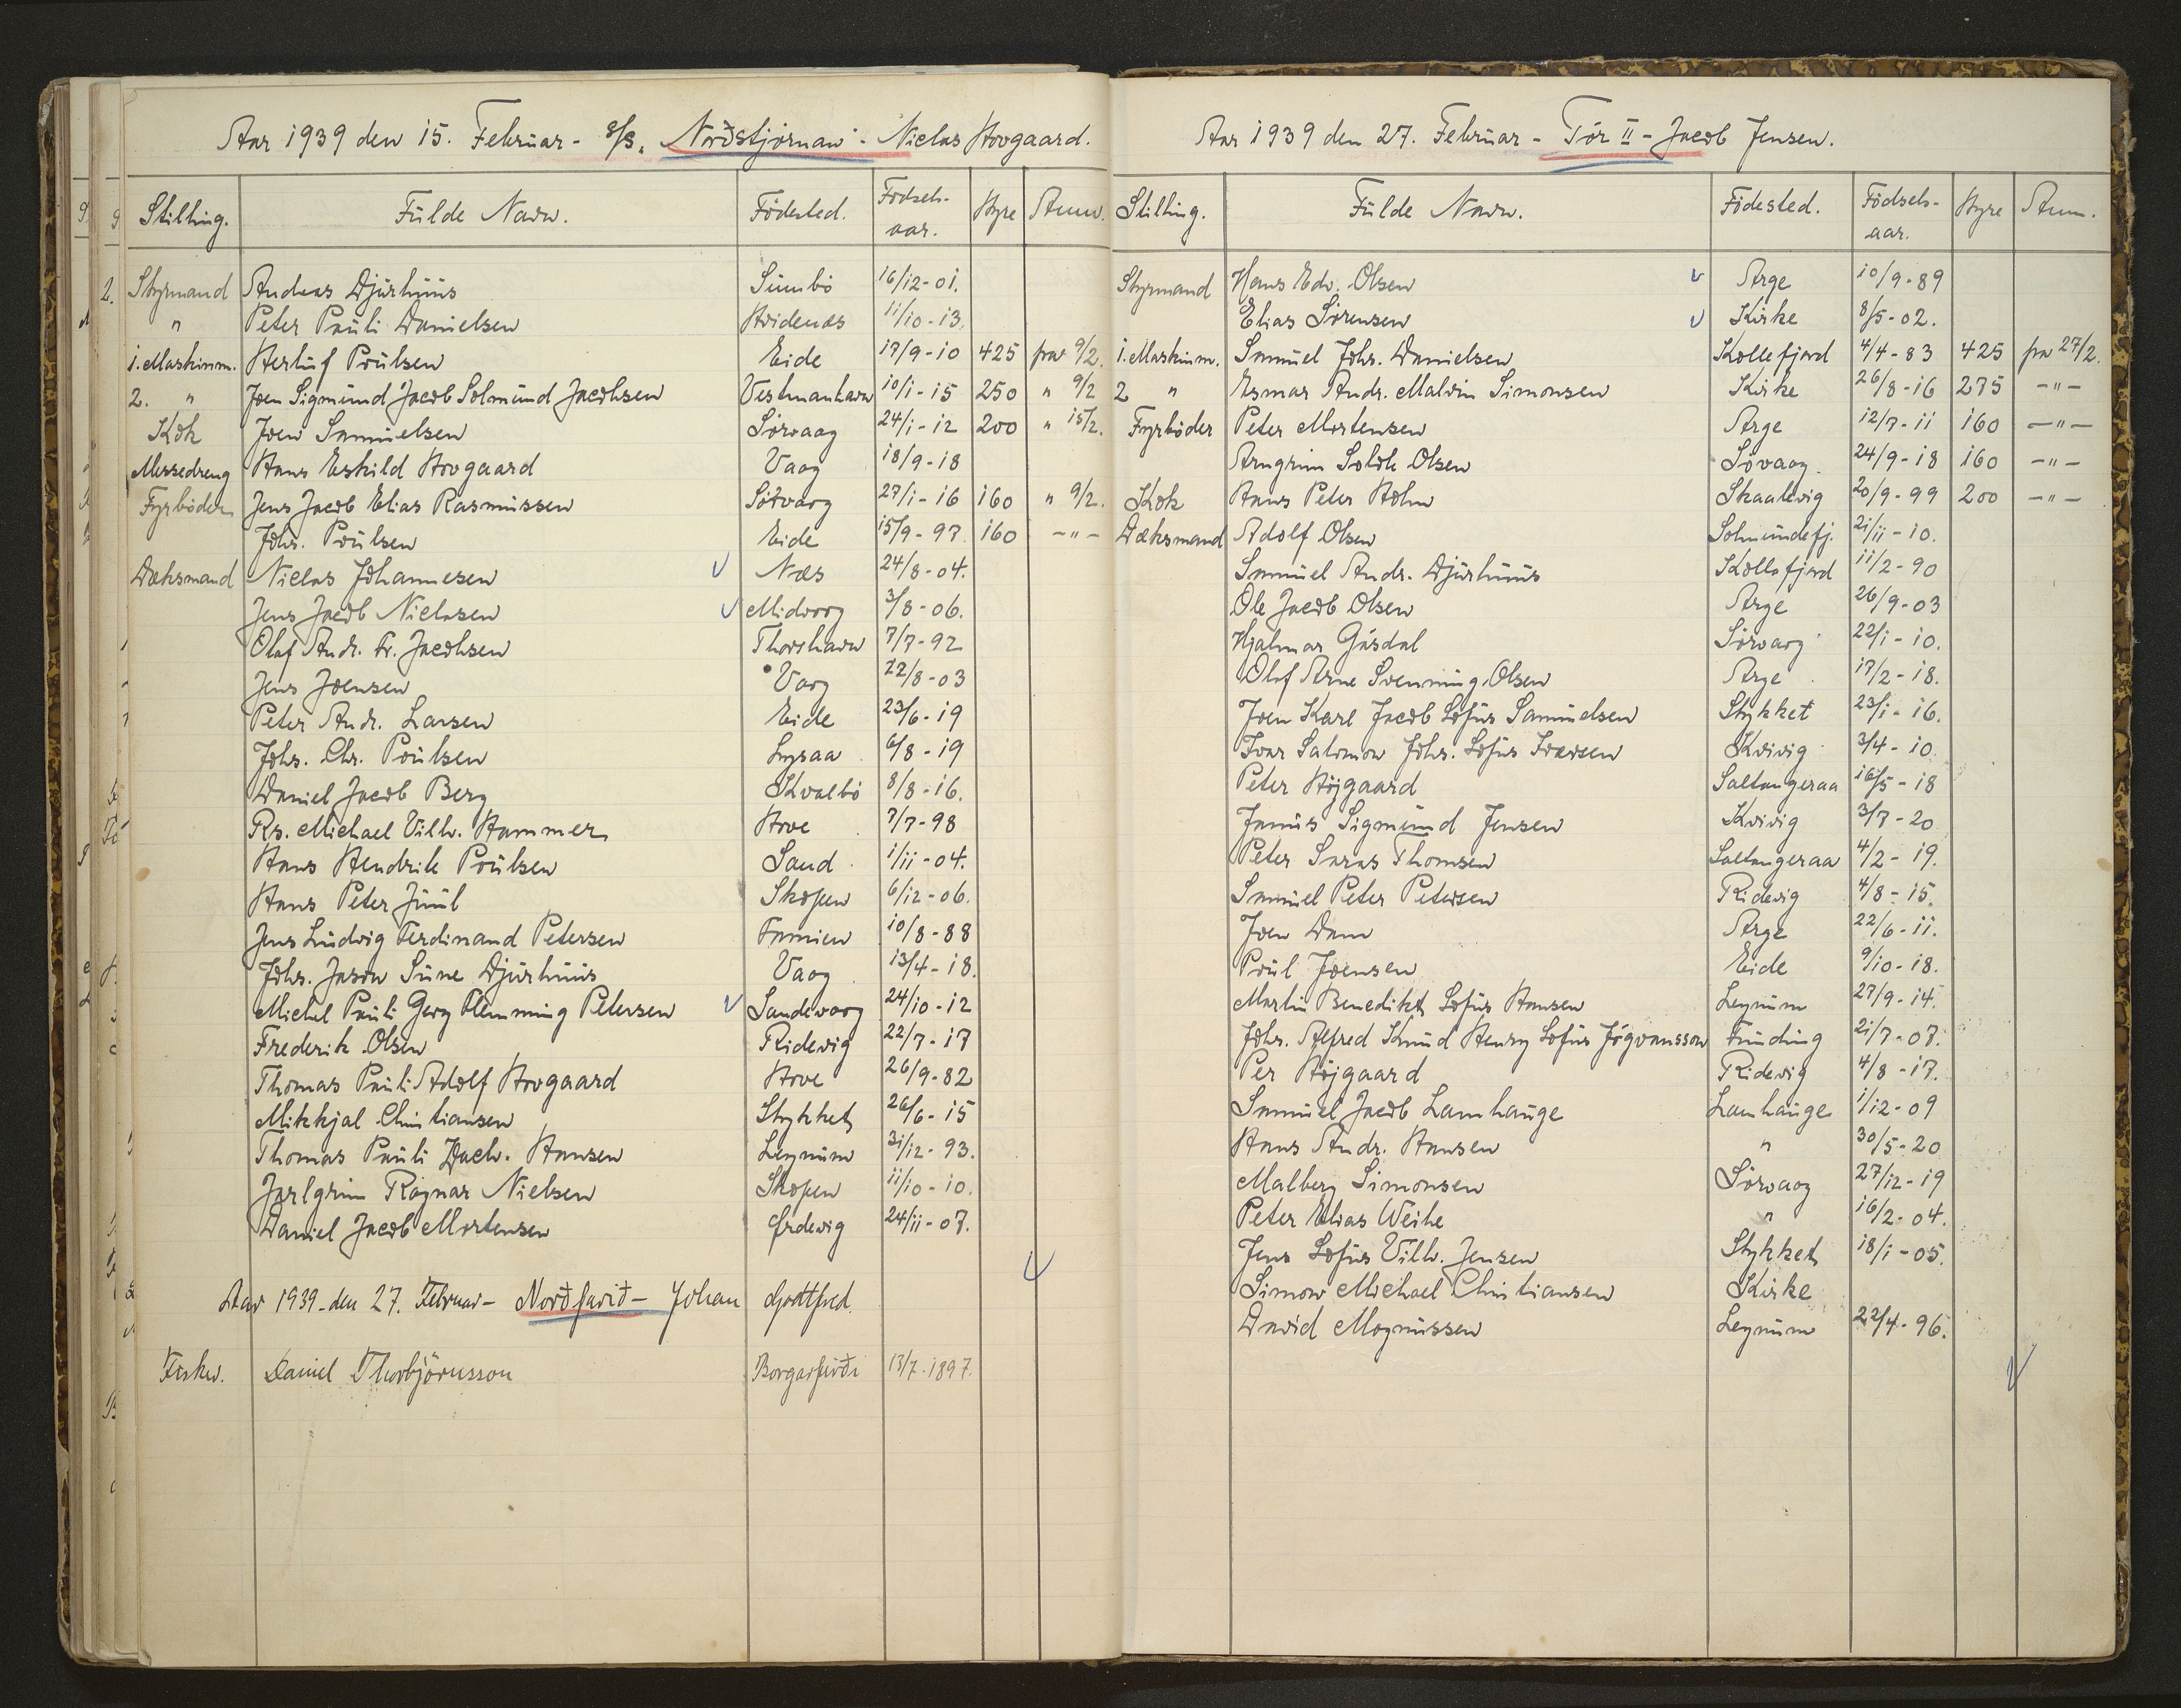 Aar 1939 den 15. Februar - s/s. "Norðstjørnan" - Niclas Hovgaard.
Stilling. Fulde Navn. Fødested. Fødsels-aar. Hyre Anm.
Styrmand Andreas Djurhuus Sumbø 16/12-01.
" Peter Pauli Danielsen Hvidenæs 11/10-13.
1. Maskinm. Herluf Poulsen Eide 17/9-10 425 fra 9/2.
2. " Joen Sigmund Jacob Solmund Jacobsen Vestmanhavn 10/1-15 250 " 9/2
Kok Joen Samuelsen Sørvaag 24/1-12 200 " 15/2.
Messedreng Hans Eskild Hovgaard Vaag 18/9-18
Fyrbøder Jens Jacob Elias Rasmussen Sørvaag 27/1-16 160 " 9/2.
Johs. Poulsen Eide 15/9-97. 160 -"-
Dæksmand Niclas Johannesen Næs 24/8-04.
Jens Jacob Niclasen Midvaag 3/8-06.
Olaf Andr. Fr. Jacobsen Thorshavn 7/7-92
Jens Joensen Vaag 22/8-03
Peter Andr. Larsen Eide 23/6-19
Johs. Chr. Poulsen Lysaa 6/8-19
Daniel Jacob Berg Kvalbø 8/8-16.
Rs. Michael Vilh. Hammer Hove 7/7-98
Hans Hendrik Poulsen Sand 1/11-04.
Hans Peter Juul Skopen 6/12-06.
Jens Ludvig Ferdinand Petersen Famien 10/8-88
Johs. Jason Sune Djurhuus Vaag 13/4-18.
Michel Pauli Georg Flemming Petersen Sandevaag 24/10-12
Frederik Olsen Ridevig 22/7-17
Thomas Pauli Adolf Hovgaard Hove 26/9-82
Mikkjal Christiansen Stykket 26/6-15
Thomas Pauli Zach. Hansen Leynum 31/12-93.
Jarlgrim Ragnar Nielsen Skopen 11/10-10.
Daniel Jacob Mortensen Ørdevig 24/11-07.
Aar 1939 - den 27. Februar - Norðfarið - Johan Godtfred.
Fiskm. Daniel Thorbjörnsson Borgarfirði 13/7.1897.
Aar 1939 den 27. Februar - Tór II - Jacob Jensen.
Stilling. Fulde Navn. Fødested. Fødsels-aar. Hyre Anm.
Styrmand Hans Edv. Olsen Arge 10/9-89
Elias Sørensen Kirke 8/5-02.
1. Maskinm. Samuel Johs. Danielsen Kollefjord 4/4-83 425 fra 27/2.
2 " Esmar Andr. Malvin Simonsen Kirke 26/8-16 275 -"-
Fyrbøder Peter Mortensen Arge 12/7-11 160 -"-
Arngrim Soldk Olsen Sovaag. 24/9-18 160 -"-
Kok Hans Peter Holm Skaalevig 20/9-99 200 -"-
Dæksmand Adolf Olsen Solmundefj. 21/11-10.
Samuel Andr. Djurhuus Kollefjord 11/2-90
Ole Jacob Olsen Arge 26/9-03
Hjalmar Gásdal Sørvaag 22/1-10.
Olof Arne Svenning Olsen Arge 17/2-18.
Joen Karl Jacob Sofus Samuelsen Stykket 23/1-16.
Ivar Salomon Johs. Sofus Iversen Kvivig 3/4-10.
Peter Højgaard Saltangeraa 16/5-18
Janus Sigmund Jensen Kvivig 3/7-20
Peter Saras Thomsen Saltangeraa 4/2-19.
Samuel Peter Petersen Ridevig 4/8-15.
Joen Dam Arge 22/6-11.
Poul Joensen Eide 9/10-18.
Martin Benedikt Sofus Hansen Leynum 27/9-14.
Johs. Alfred Knud Henry Sofus Jógvansson Funding 21/7-07.
Per Højgaard Ridevig 4/8-17.
Samuel Jacob Lamhauge Lamhauge 1/12-09
Hans Andr. Hansen " 30/5-20
Malberg Simonsen Sørvaag 27/12-19
Peter Elias Weihe " 16/2-04.
Jens Sofus Vilh. Jensen Stykket 18/1-05.
Simon Michael Christiansen Kirke
David Magnussen Leynum 22/4-96.